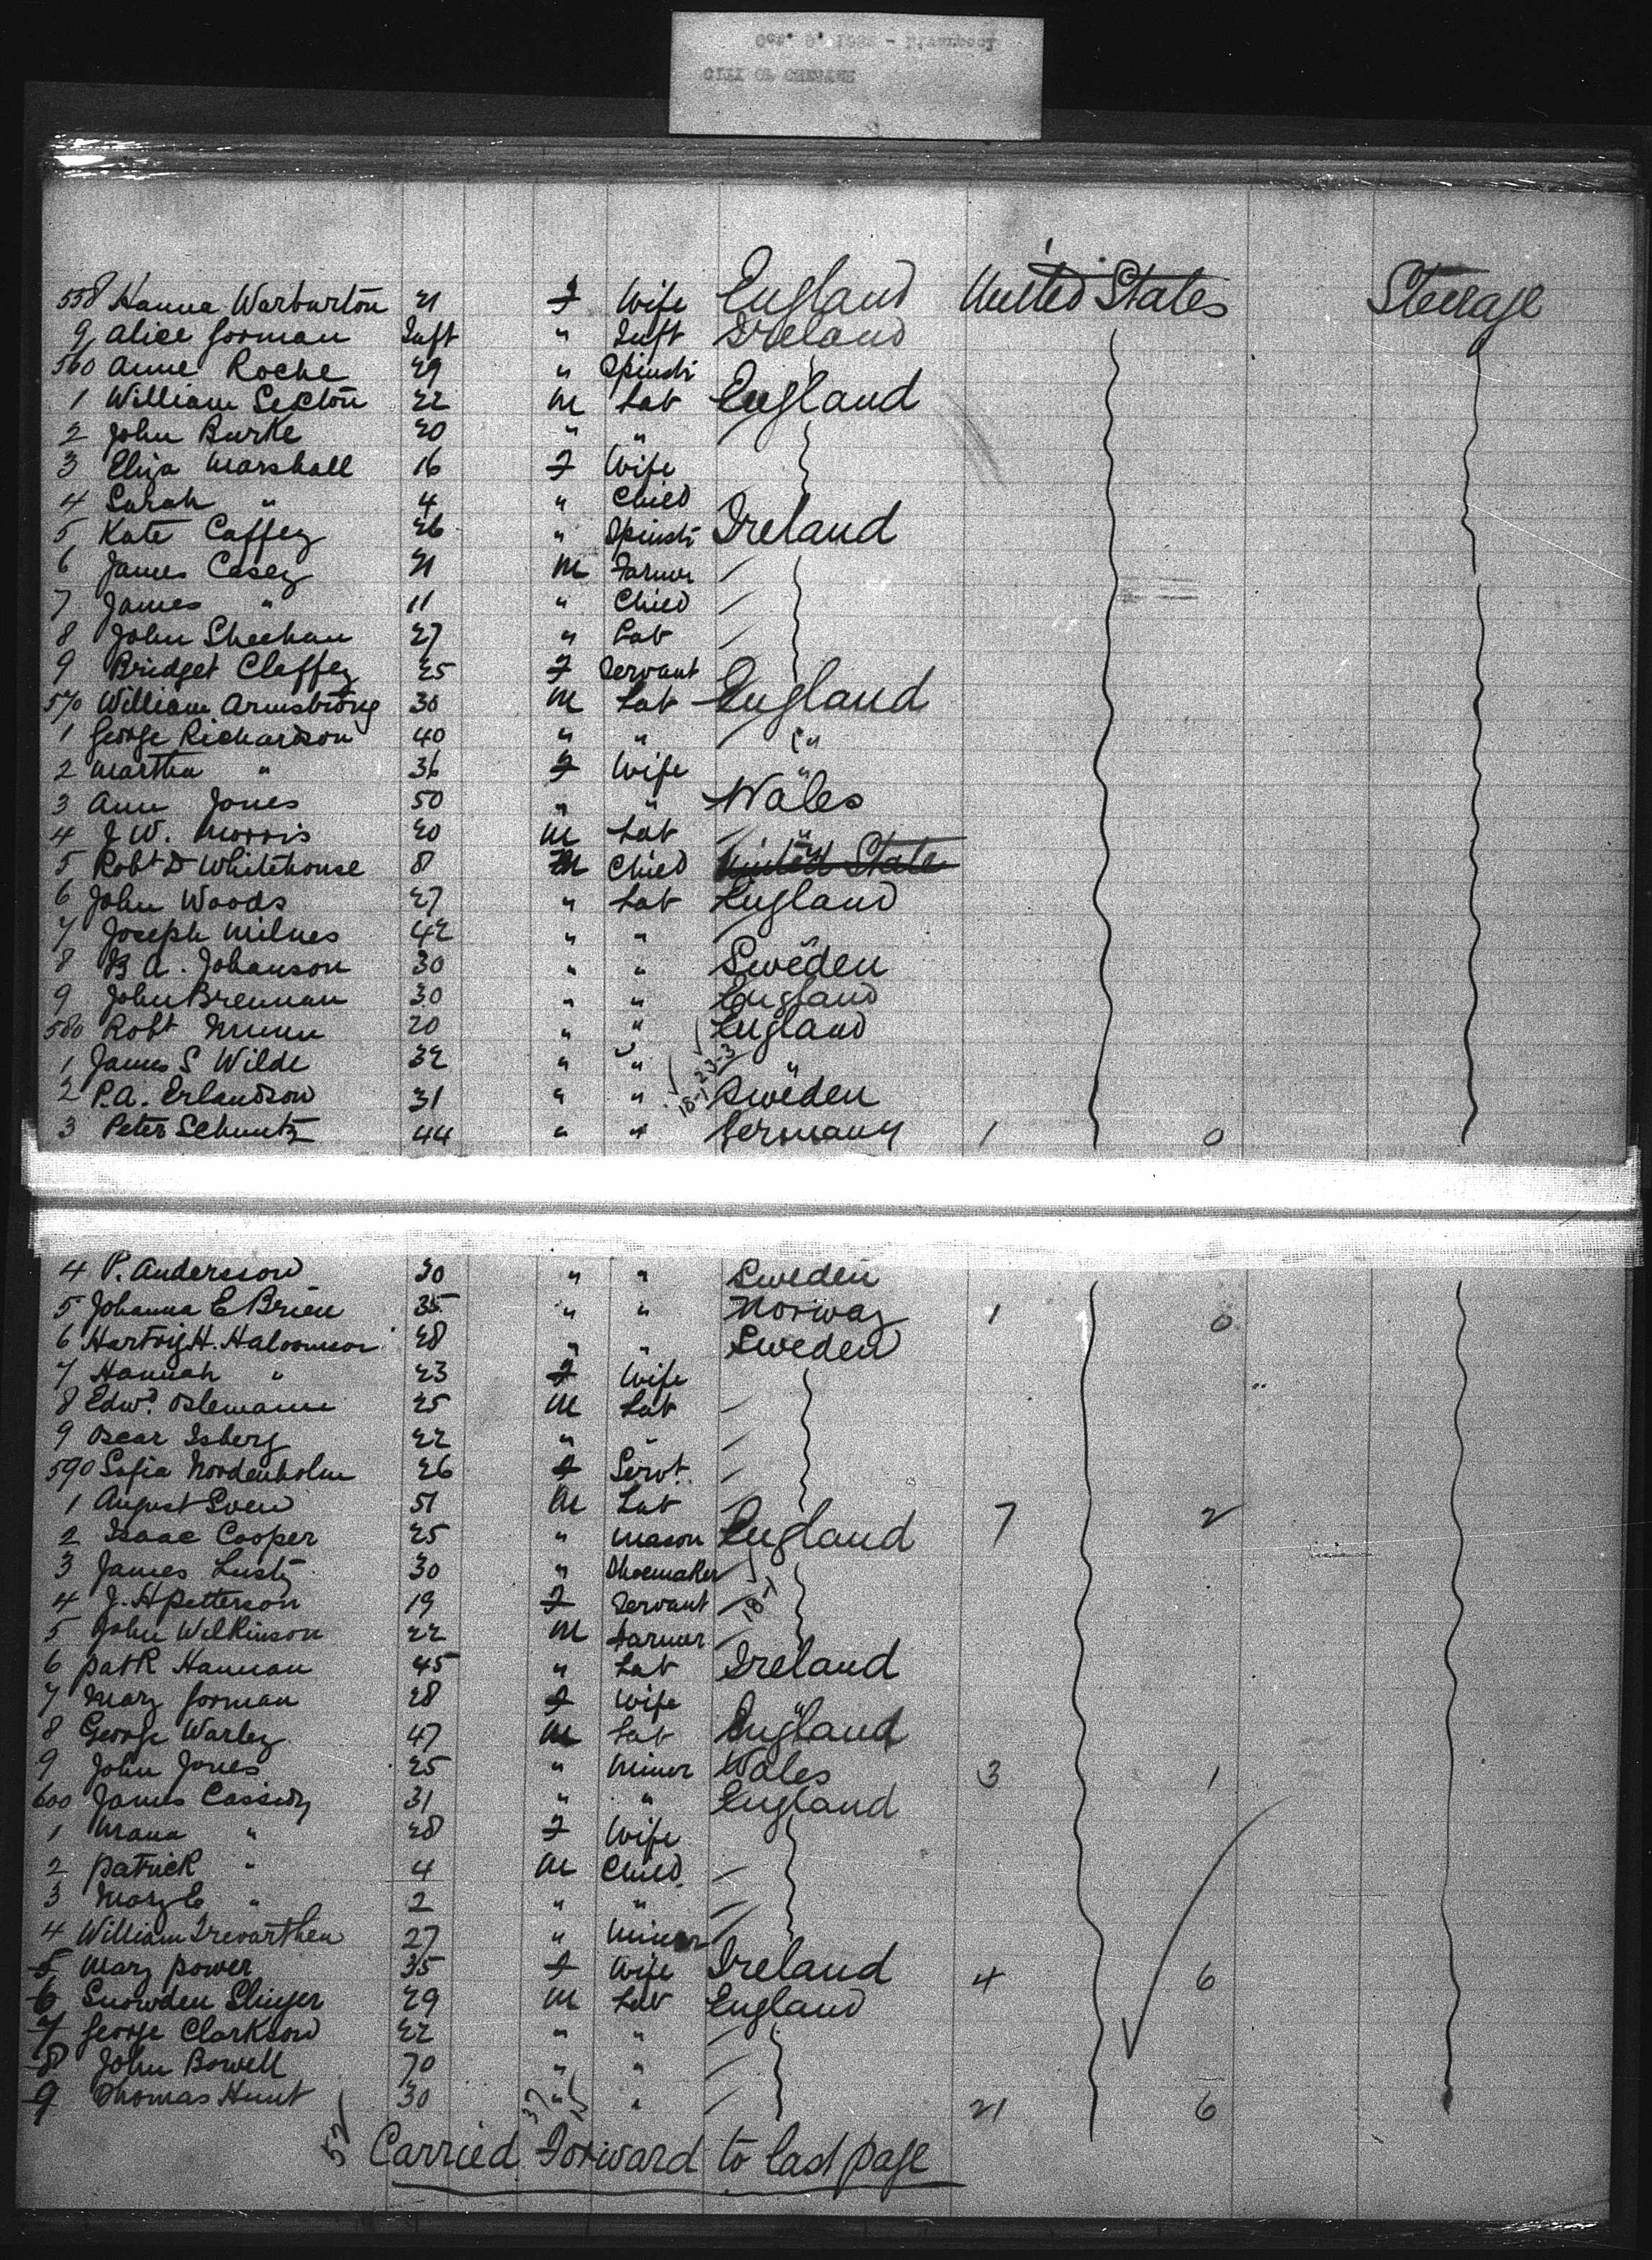 CITY OF CHESTER
558 Hanna Warburton 21 F Wife England United States Steerage
9 Alice Gorman Inft " Inft Ireland
560 Anne Roche 29 " Spinstr
1 William Sexton 22 M Lab England
2 John Burke 20 " "
3 Eliza Marshall 16 F Wife
4 Sarah " 4 " Child
5 Kate Caffey 26 " Spinstr Ireland
6 James Casey 21 M Farmer
7 James " 11 " Child
8 John Sheehan 27 " Lab
9 Bridget Claffey 25 F Servant
570 William Armstrong 30 M Lab England
1 George Richardson 40 " " "
2 Martha " 36 F Wife "
3 Ann Jones 50 " " Wales
4 J W. Morris 20 M Lab "
5 Robt D Whitehouse 8 M Child United State
6 John Woods 27 " Lab England
7 Joseph Milnes 42 " " "
8 B A. Johanson 30 " " Sweden
9 John Brennan 30 " " England
580 Robt Munn 20 " " England
1 James S Wilde 32 " " "
2 P.A. Erlandson 31 " " Sweden
3 Peter Schuntz 44 " " Germany 1 0
4 P. Andersson 30 " " Sweden
5 Johanna E Brien 35 " " Norway 1 0
6 Hartvig H. 28 " " Sweden
7 Hannah " 23 F Wife
8 Edwd. Oslemann 25 M Lab
9 Oscar Isberg 22 " "
590 Sofia Nordenholm 26 F Servt.
1 August Sven 51 M Lab 7 2
2 Isaac Cooper 25 " Mason England
3 James Lusty 30 " Shoemaker
4 J. H Petterson 19 F Servant
5 John Wilkinson 22 M Farmer
6 Patk Hannan 45 " Lab Ireland
7 Mary Gorman 28 F Wife "
8 George Warley 47 M Lab England
9 John Jones 25 " Miner Wales 3 1
600 James Cassidy 31 " " England
1 " 28 F Wife
2 Patrick " 4 M Child
3 Mary E " 2 " "
4 William Trevarthen 27 " Miner
5 Mary Power 35 F Wife Ireland 4 6
6 Snowden Slinger 29 M Lab England
7 George Clarkson 22 " "
8 John Bowell 70 " "
9 Thomas Hunt 30 " " 21 6
52 Carried Forward to last page